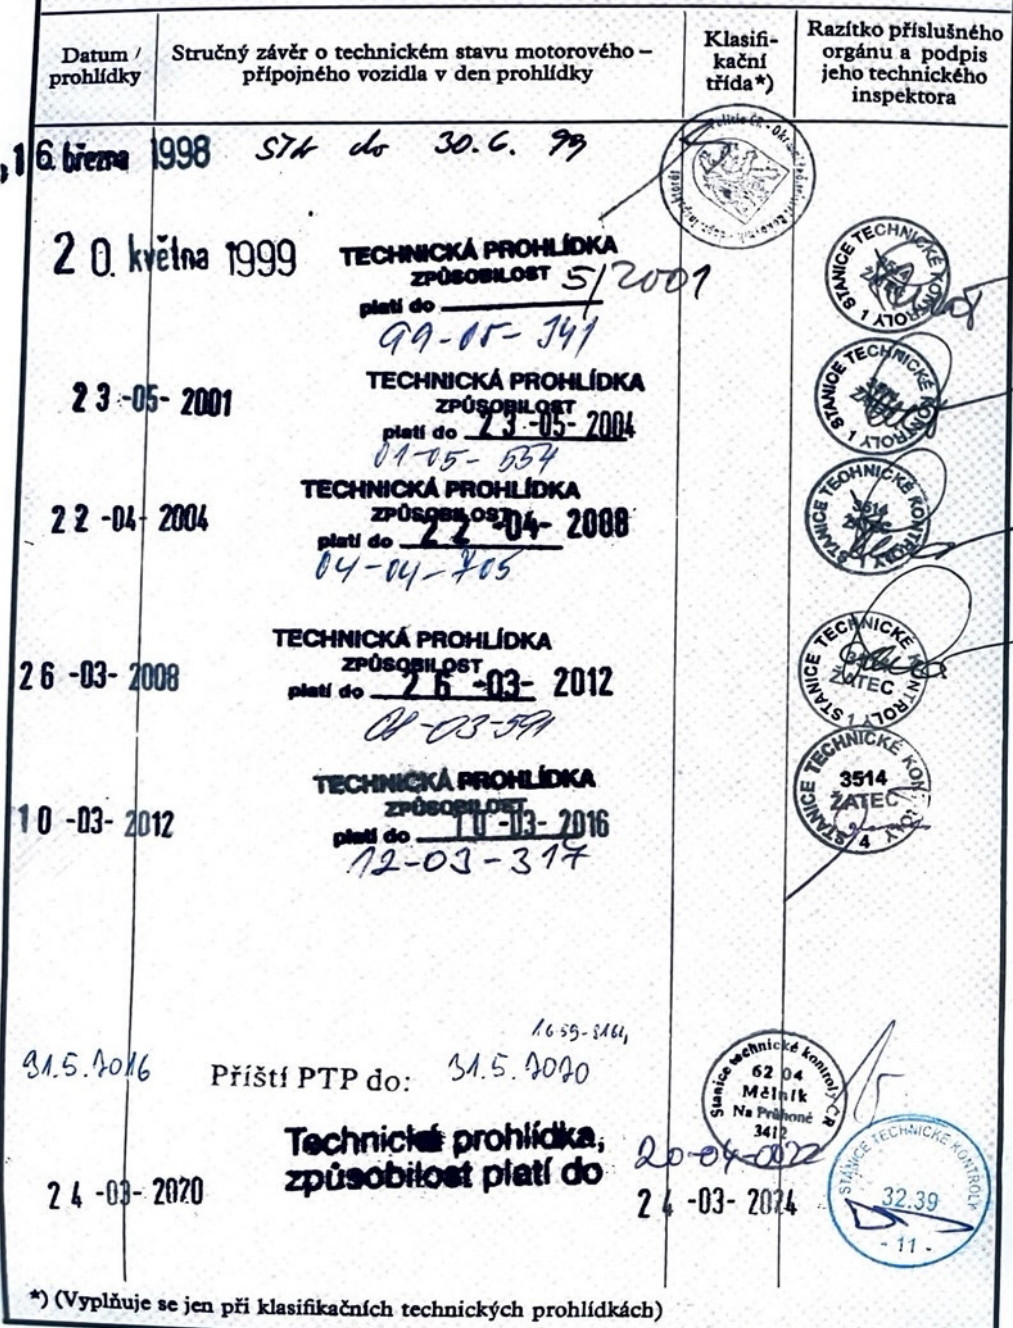 Datum / prohlídky
Stručný závěr o technickém stavu motorového – přípojného vozidla v den prohlídky
Klasifi-
kační
třída*)
Razítko příslušného
orgánu a podpis
jeho technického
inspektora
16. března 1998 STK do 30.6. 99
20. května 1999
TECHNICKÁ PROHLÍDKA
ZPŮSOBILOST
platí do 5/2001
99-05-341
STANICE TECHNICKÉ KONTROLY 1
23-05-2001
TECHNICKÁ PROHLÍDKA
ZPŮSOBILOST
platí do 23-05-2004
01-05-554
STANICE TECHNICKÉ KONTROLY 1
22-04-2004
TECHNICKÁ PROHLÍDKA
ZPŮSOBILOST
platí do 22-04-2008
04-04-705
STANICE TECHNICKÉ KONTROLY
3514
ŽATEC
26-03-2008
TECHNICKÁ PROHLÍDKA
ZPŮSOBILOST
platí do 26-03-2012
08-03-591
STANICE TECHNICKÉ KONTROLY 1
ŽATEC
10-03-2012
TECHNICKÁ PROHLÍDKA
ZPŮSOBILOST
platí do 10-03-2016
12-03-317
STANICE TECHNICKÉ KONTROLY
3514
ŽATEC
4
31.5.2016 Příští PTP do: 31.5.2020
Stanice technické kontroly ČR
62 04
Mělník
Na Průhoně
3412
Technická prohlídka,
způsobilost platí do
24-03-2020
24-03-2024
STANICE TECHNICKÉ KONTROLY
32.39
- 11 -
*) (Vyplňuje se jen při klasifikačních technických prohlídkách)